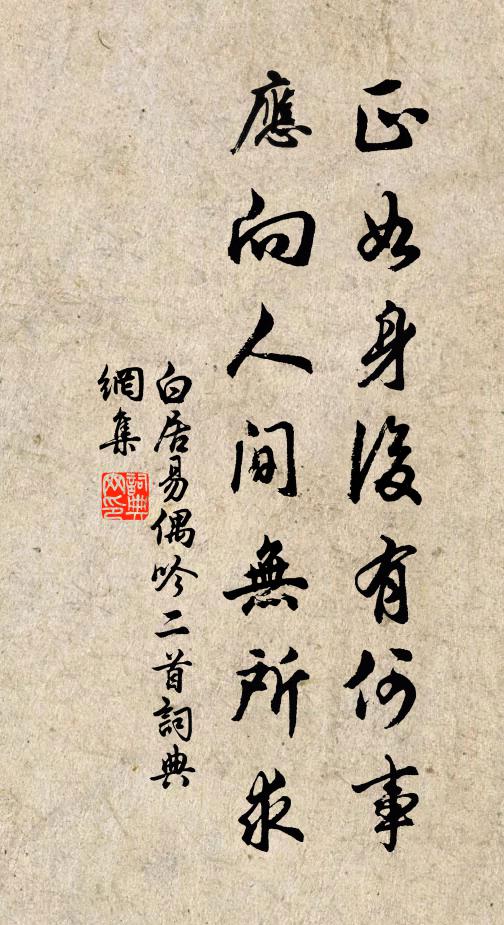 正如身後有何事
應向人間無所求
白居易偶吟二首詞典
網集
詞典網印